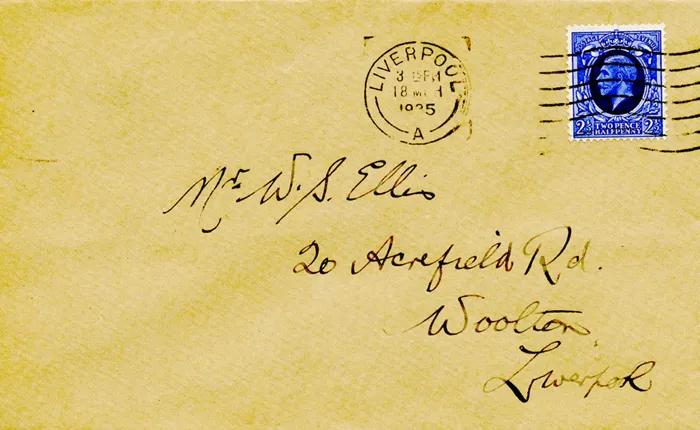 LIVERPOOL
3 PM
18 MCH
1935
A
2½ TWO PENCE 2½
HALFPENNY
Mr. W. S. Ellis
20 Acrefield Rd.
Woolton
Liverpool